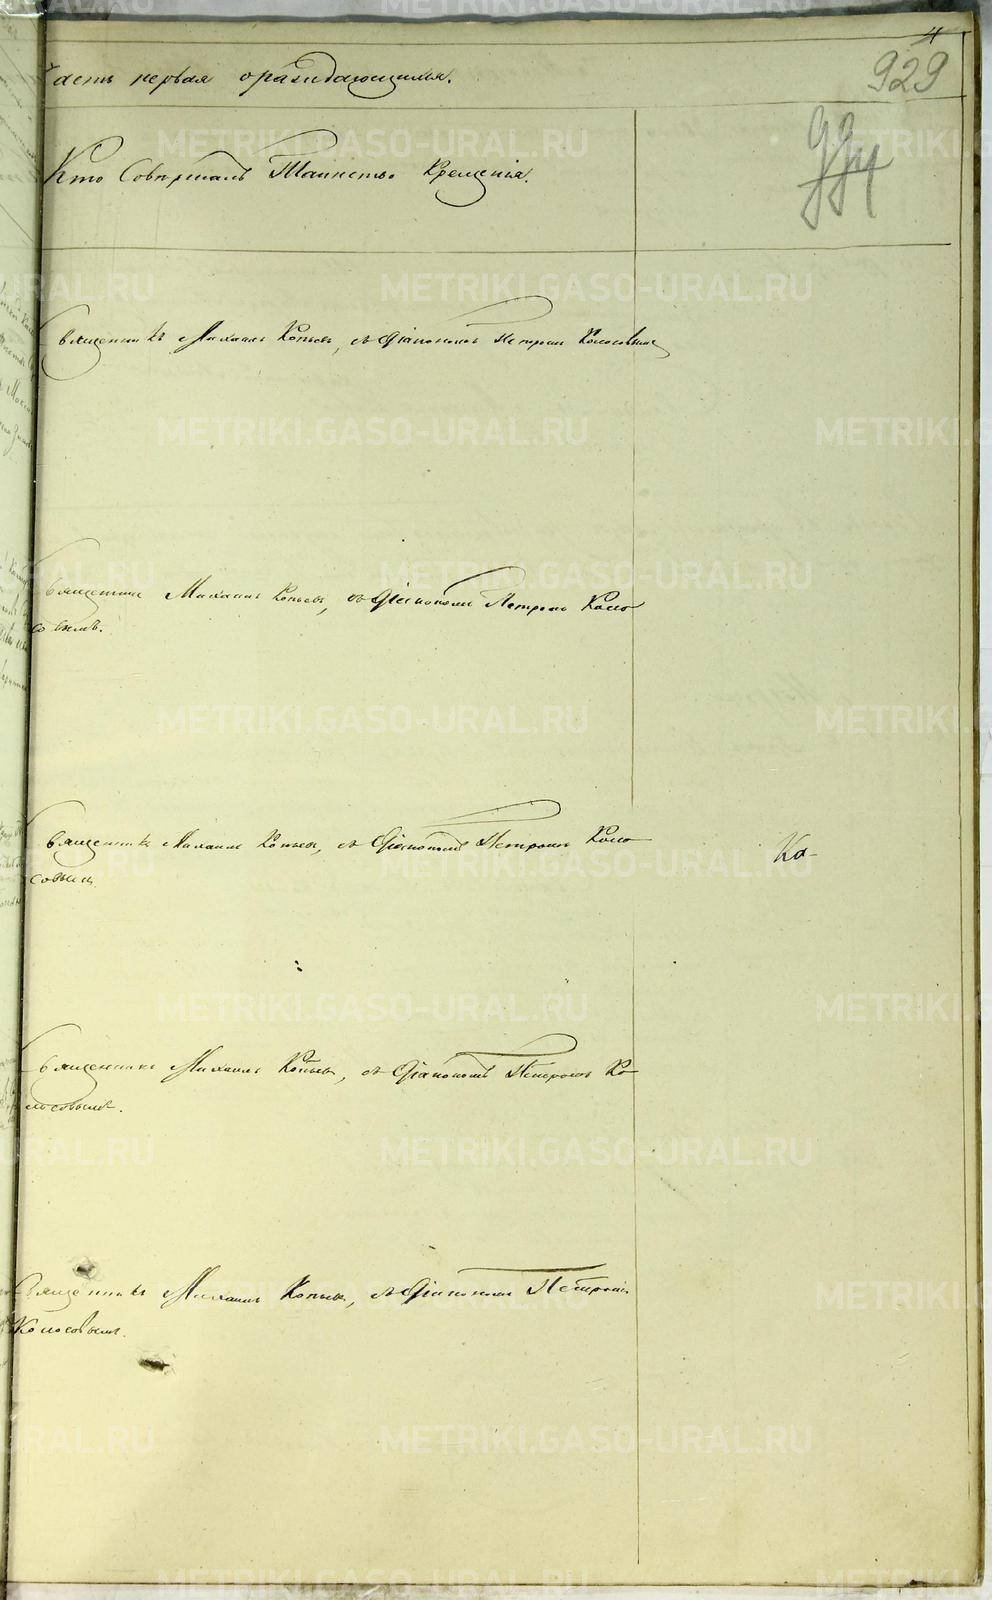 11
929
Часть первая о раждающихся.
Кто Совершалъ Таинство Крещенія.
994
Священникъ Михаилъ Копьевъ, съ Діакономъ Петромъ Колосовымъ
Священникъ Михаилъ Копьевъ, съ Діакономъ Петромъ Коло
совымъ.
Священникъ Михаилъ Копьевъ, съ Діакономъ Петромъ Коло
совымъ
Ко-
Священникъ Михаилъ Копьевъ, съ Діакономъ Петромъ Ко-
лосовымъ.
Священникъ Михаилъ Копьевъ, съ Діакономъ Петромъ
Колосовымъ.
METRIKI.GASO-URAL.RU